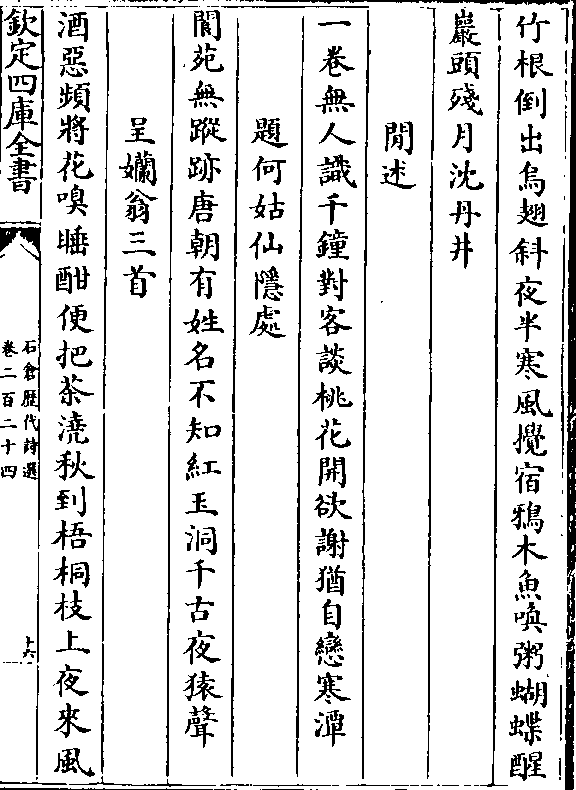 竹根倒出烏翅斜夜半寒風攪宿鴉木魚喚粥蝴蝶醒
巖頭殘月沈丹井
閒述
一卷無人識千鐘對客談桃花開欲謝猶自戀寒潭
題何姑仙隱處
閬苑無蹤跡唐朝有姓名不知紅玉洞千古夜猿聲
呈嬾翁三首
酒惡頻將花嗅睡酣便把茶澆秋到梧桐枝上夜來風
欽定四庫全書
石倉歷代詩選
卷二百二十四
十六